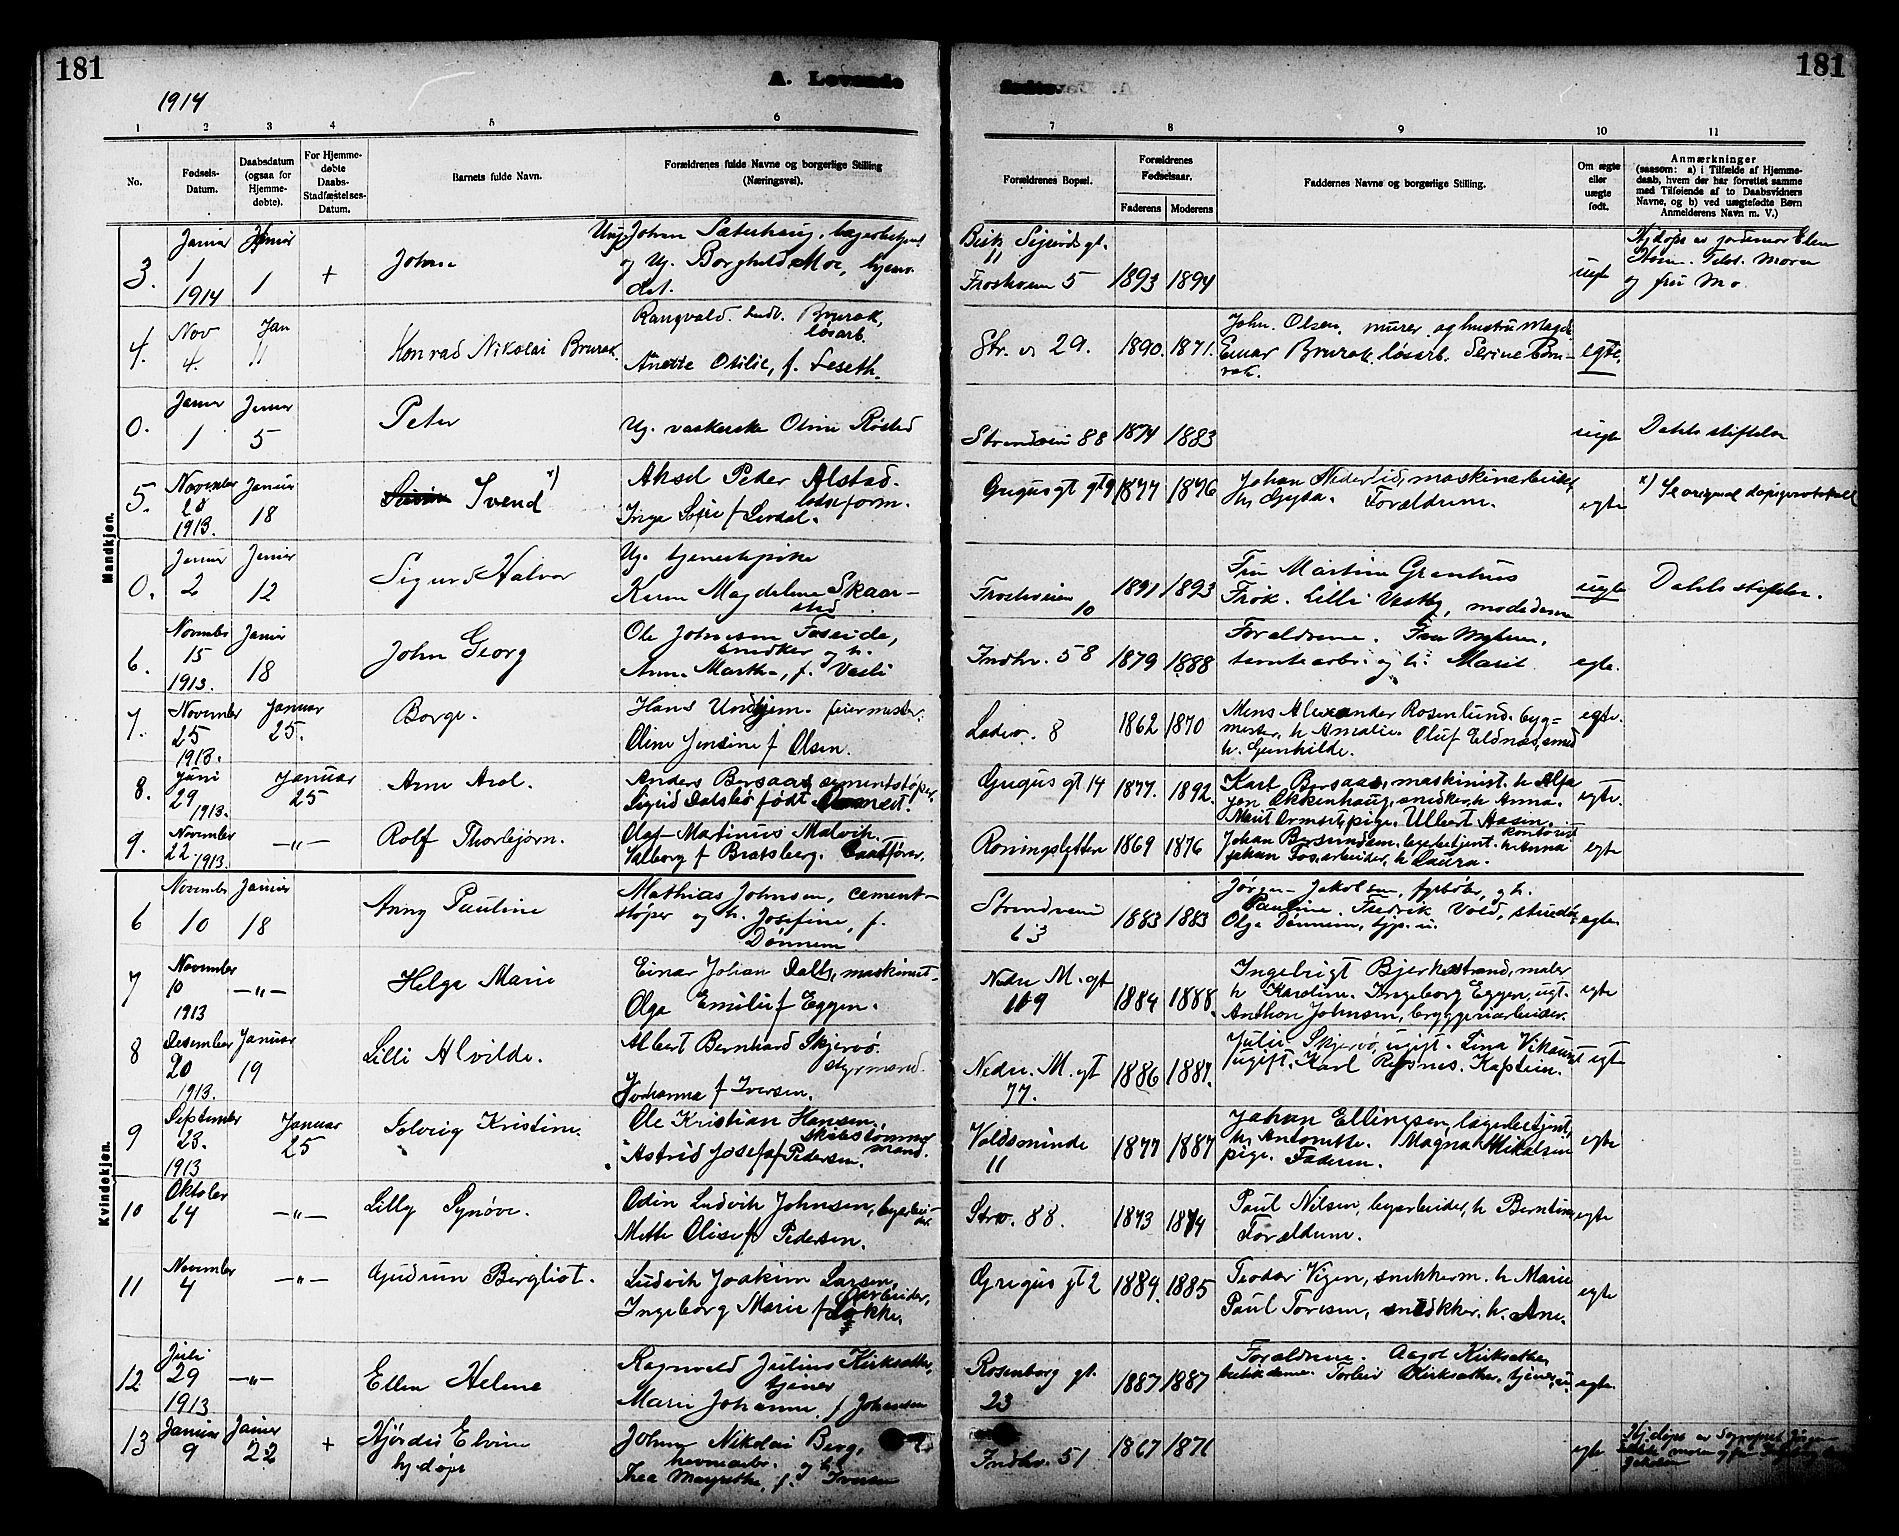 181
A. Levende
fødte.
181
1914
1 2 3 4 5 6 7 8 9 10 11
No.
Fødsels-
Datum.
Daabsdatum
(ogsaa for
Hjemme-
døbte).
For Hjemme-
døbte
Daabs-
Stadfæstelses-
Datum.
Barnets fulde Navn.
Forældrenes fulde Navne og borgerlige Stilling
(Næringsvei).
Forældrenes Bopæl.
Forældrenes
Fødselsaar.
Faderens Moderens
Faddernes Navne og borgerlige Stilling.
Om ægte
eller
uægte
født.
Anmærkninger
(saasom: a) i Tilfælde af Hjemme-
daab, hvem der har forrettet samme
med Tilføiende af to Daabsvidners
Navne, og b) ved uægtefødte Børn
Anmelderens Navn m. V.)
Mandkjøn.
3. Januar 1 1914 Januar 1 + Johan
Johan Sæterhaug,
og Ug. Borghild Moe,
Frostveien 5 1893 1894 uegte
og fru Mo
4. Nov 4. Jan 11 Konrad Nikolai Brurok.
Rangvald Ludv. Brurok, løsarb.
Anette Otilie, f. Leseth.
Str. v 29. 1890. 1871.
John. Olsen, murer og hustru Magda
Einar Brurok løsarb. Serine Bru-
rok.
egte.
0. Januar 1 Januar 5 Peter
Ug. vaskerske Oline Røstad
Strandveien 88 1874 1883 uegte Dahls stiftelse
5. November 20 1913. Januar 18 Svend x)
Aksel Peder Alstad.
lodseform.
Gregus gt 1877 1876
Johan Nederlid, maskinarbeider
h. Gyda. Forældrene.
egte x) Se original daapsprotokoll
0. Januar 2 Januar 12 Sigurd Halvor
Ug. tjenestepike
Karen Magdalene Skaar-
stad
Frostveien 10 1891 1893
Fru Martine Granhus
Frøk. Lilli Vestby,
uegte Dahls stiftelse.
6. Novembr 15 1913. Januar 18 John Georg
Ole Johnsen Foseide,
snedker og h.
Anne Martha, f. Vasli
Indhv. 58 1879 1888
Forældrene.
Marit egte.
7. November 25 1913. Januar 25. Borge.
Hans Undhjem. feiermester.
Oline Jensine f Olsen.
Ladev. 8 1862 1870
Mens Alexander Rosenlund. byg=
mester, h Amalie. Oluf Eldnæs, smed
h. Gunhilde.
egte.
8. Juni 29 1913. Januar 25 Arne Axel.
Anders Borsaas, cementstøper.
Sigrid Dalsbø født
Gregus gt 14 1877. 1892.
Karl Borsaas, maskinist. h Alfa
Jon Okkenhaug, snedker, h Anna.
Marit Ormset, pige. Albert Aasen. kontorist
egte.
9. November 22 1913. —"— Rolf Thorbjørn.
Olaf Martinus Malvik.
Valborg f Bratsberg. Baatfører.
Roningsletten 1869 1876
h Anna
Johan Fos, arbeider, h Laura.
egte
Kvindekjøn.
6 Novembr 10 Januar 18 Anny Pauline
Mathias Johnsen, cement-
støper og h. Josefine, f.
Dønnem
Strandveien 63 1883 1883
Jørgen Jakobsen, fyrbøter, og h.
Pauline. Fredrik Vold,
Olga Dønnem, egte.
7 November 10 1913 —"— Helga Marie
Einar Johan Dalls, maskinist.
Olga Emilie f Eggen.
Nedre M. gt 119 1884 1888.
Ingebrigt Bjerkestrand, maler
h Karoline. Ingeborg Eggen, ugt.
Anthon Johnsen, bryggeriarbeider.
egte
8 Desember 20 1913. Januar 19 Lilli Alvilde.
Albert Bernhard Skjervø.
styrmand.
Johanna f Iversen.
Nedre. M. gt 77. 1886 1887.
Julie Skjervø, ugift. Lina
ugift. Karl Røsnes. Kaptein. egte
9 September 23. 1913 Januar 25 Solveig Kristine.
Ole Kristian Hansen.
skibstømmermand.
Astrid Josefa f Pedersen.
Voldsminde 11 1877 1887
Johan Ellingsen, lagerbetjent,
h. Antonette. Magna Mikalsen
pige. Faderen. egte
10 Oktober 24 —"— Lilly Synøve.
Odin Ludvik Johnsen, byarbei-
der.
Mette Olise f Pedersen.
Strv. 88. 1873 1874
Paul Nilsen, byarbeider, h Berntine
Forældrene. egte
11 November 4 —"— Gudrun Bergliot.
Ludvik Joakim Larsen,
Ingeborg Marie f Løkke.
Gregus gt 2 1884. 1885
Teodor Vigen, snikkerm. h. Marie
Paul Toresen, snedkker. h. Ane.
egte
12 Juli 29 1913 —"— Ellen Helene
Ragnvald Julius Kirksæther,
tjener
Marie Johanne f Johansen
Rosenborg gt. 23 1887 1887
Forældrene. Aagot Kirksæther
butikdame. Torleiv Kirksæther, tjener, egte.
13 Januar 9 Januar 22 + Hjørdis Elvine
hjdøpt
Johan Nikolai Berg,
havnearb. og h
Thea Margrethe, f. Iversen
Indhv. 51 1867 1871 egte